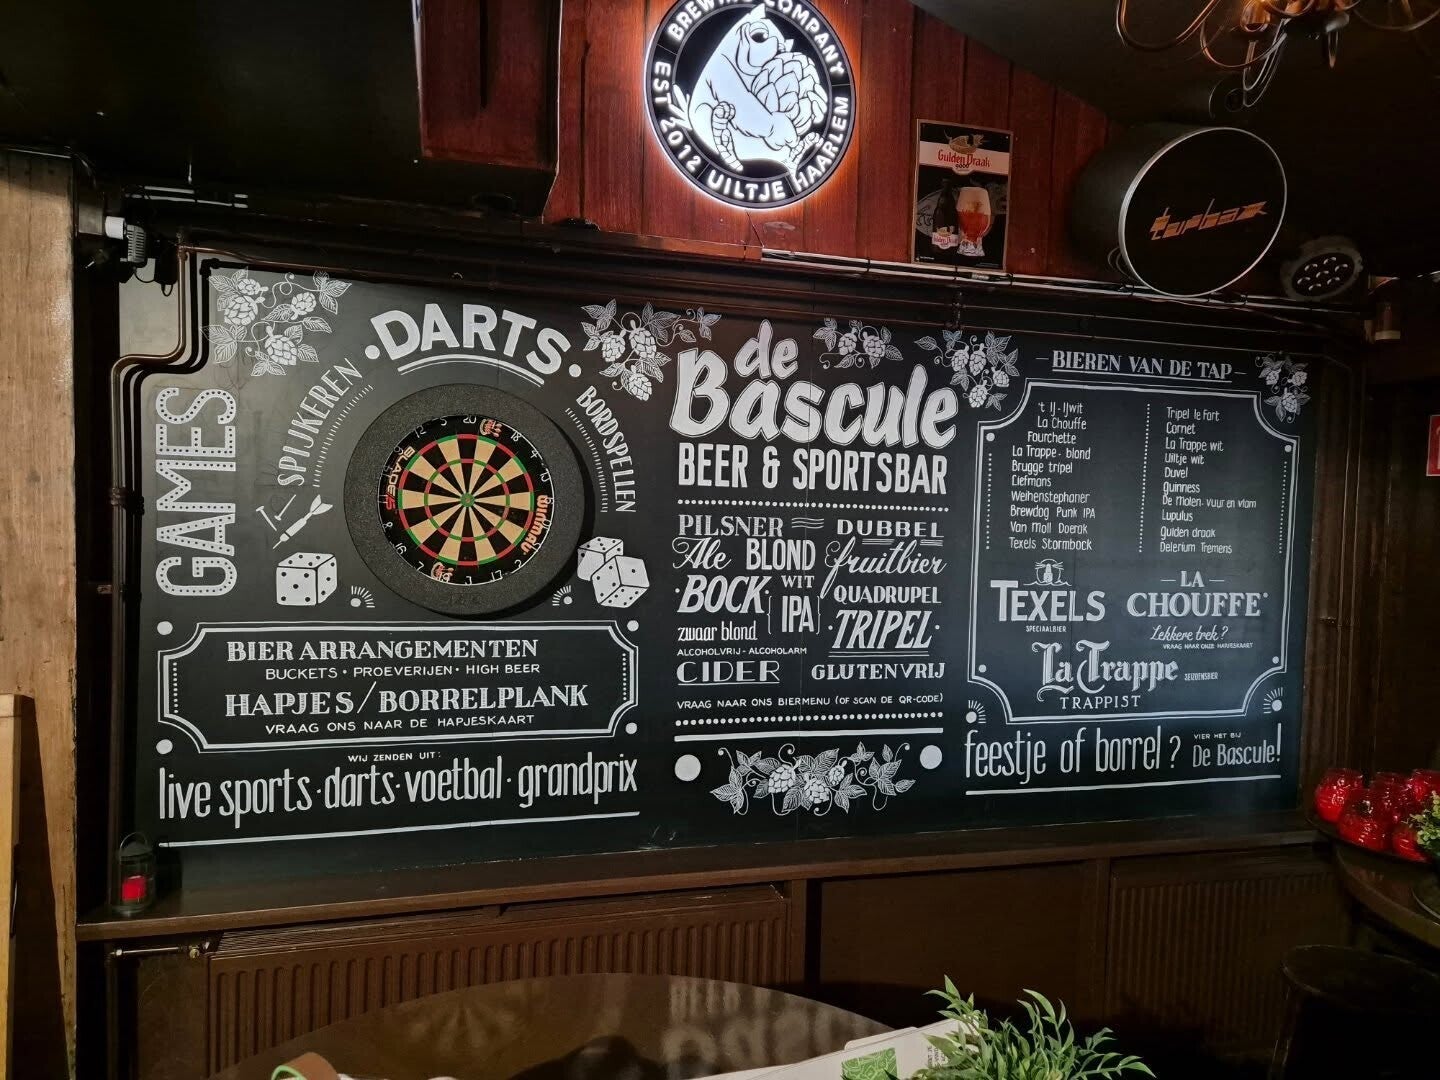 BREWING COMPANY
EST 2012 UILTJE HAARLEM
Gulden Draak
turbax
GAMES
SPIJKEREN
·DARTS·
BORDSPELLEN
BLADE
WINMAU
BIER ARRANGEMENTEN
BUCKETS · PROEVERIJEN · HIGH BEER
HAPJES/BORRELPLANK
VRAAG ONS NAAR DE HAPJESKAART
WIJ ZENDEN UIT:
live sports · darts · voetbal · grandprix
de
Bascule
BEER & SPORTSBAR
PILSNER
DUBBEL
Ale BLOND fruitbier
·BOCK· WIT
IPA
QUADRUPEL
zwaar blond
·TRIPEL·
ALCOHOLVRIJ - ALCOHOLARM
CIDER GLUTENVRIJ
VRAAG NAAR ONS BIERMENU (OF SCAN DE QR-CODE)
— BIEREN VAN DE TAP —
't IJ - IJwit
La Chouffe
Fourchette
La Trappe - blond
Brugge tripel
Liefmans
Weihenstephaner
Brewdog Punk IPA
Van Moll Doerak
Texels Stormbock
Tripel le Fort
Cornet
La Trappe wit
Uiltje wit
Duvel
Guinness
De Molen - vuur en vlam
Lupulus
Gulden draak
Delerium Tremens
TEXELS
SPECIAALBIER
— LA —
CHOUFFE
Lekkere trek?
VRAAG NAAR ONZE HAPJESKAART
La Trappe
TRAPPIST
SEIZOENSBIER
feestje of borrel?
VIER HET BIJ
De Bascule!